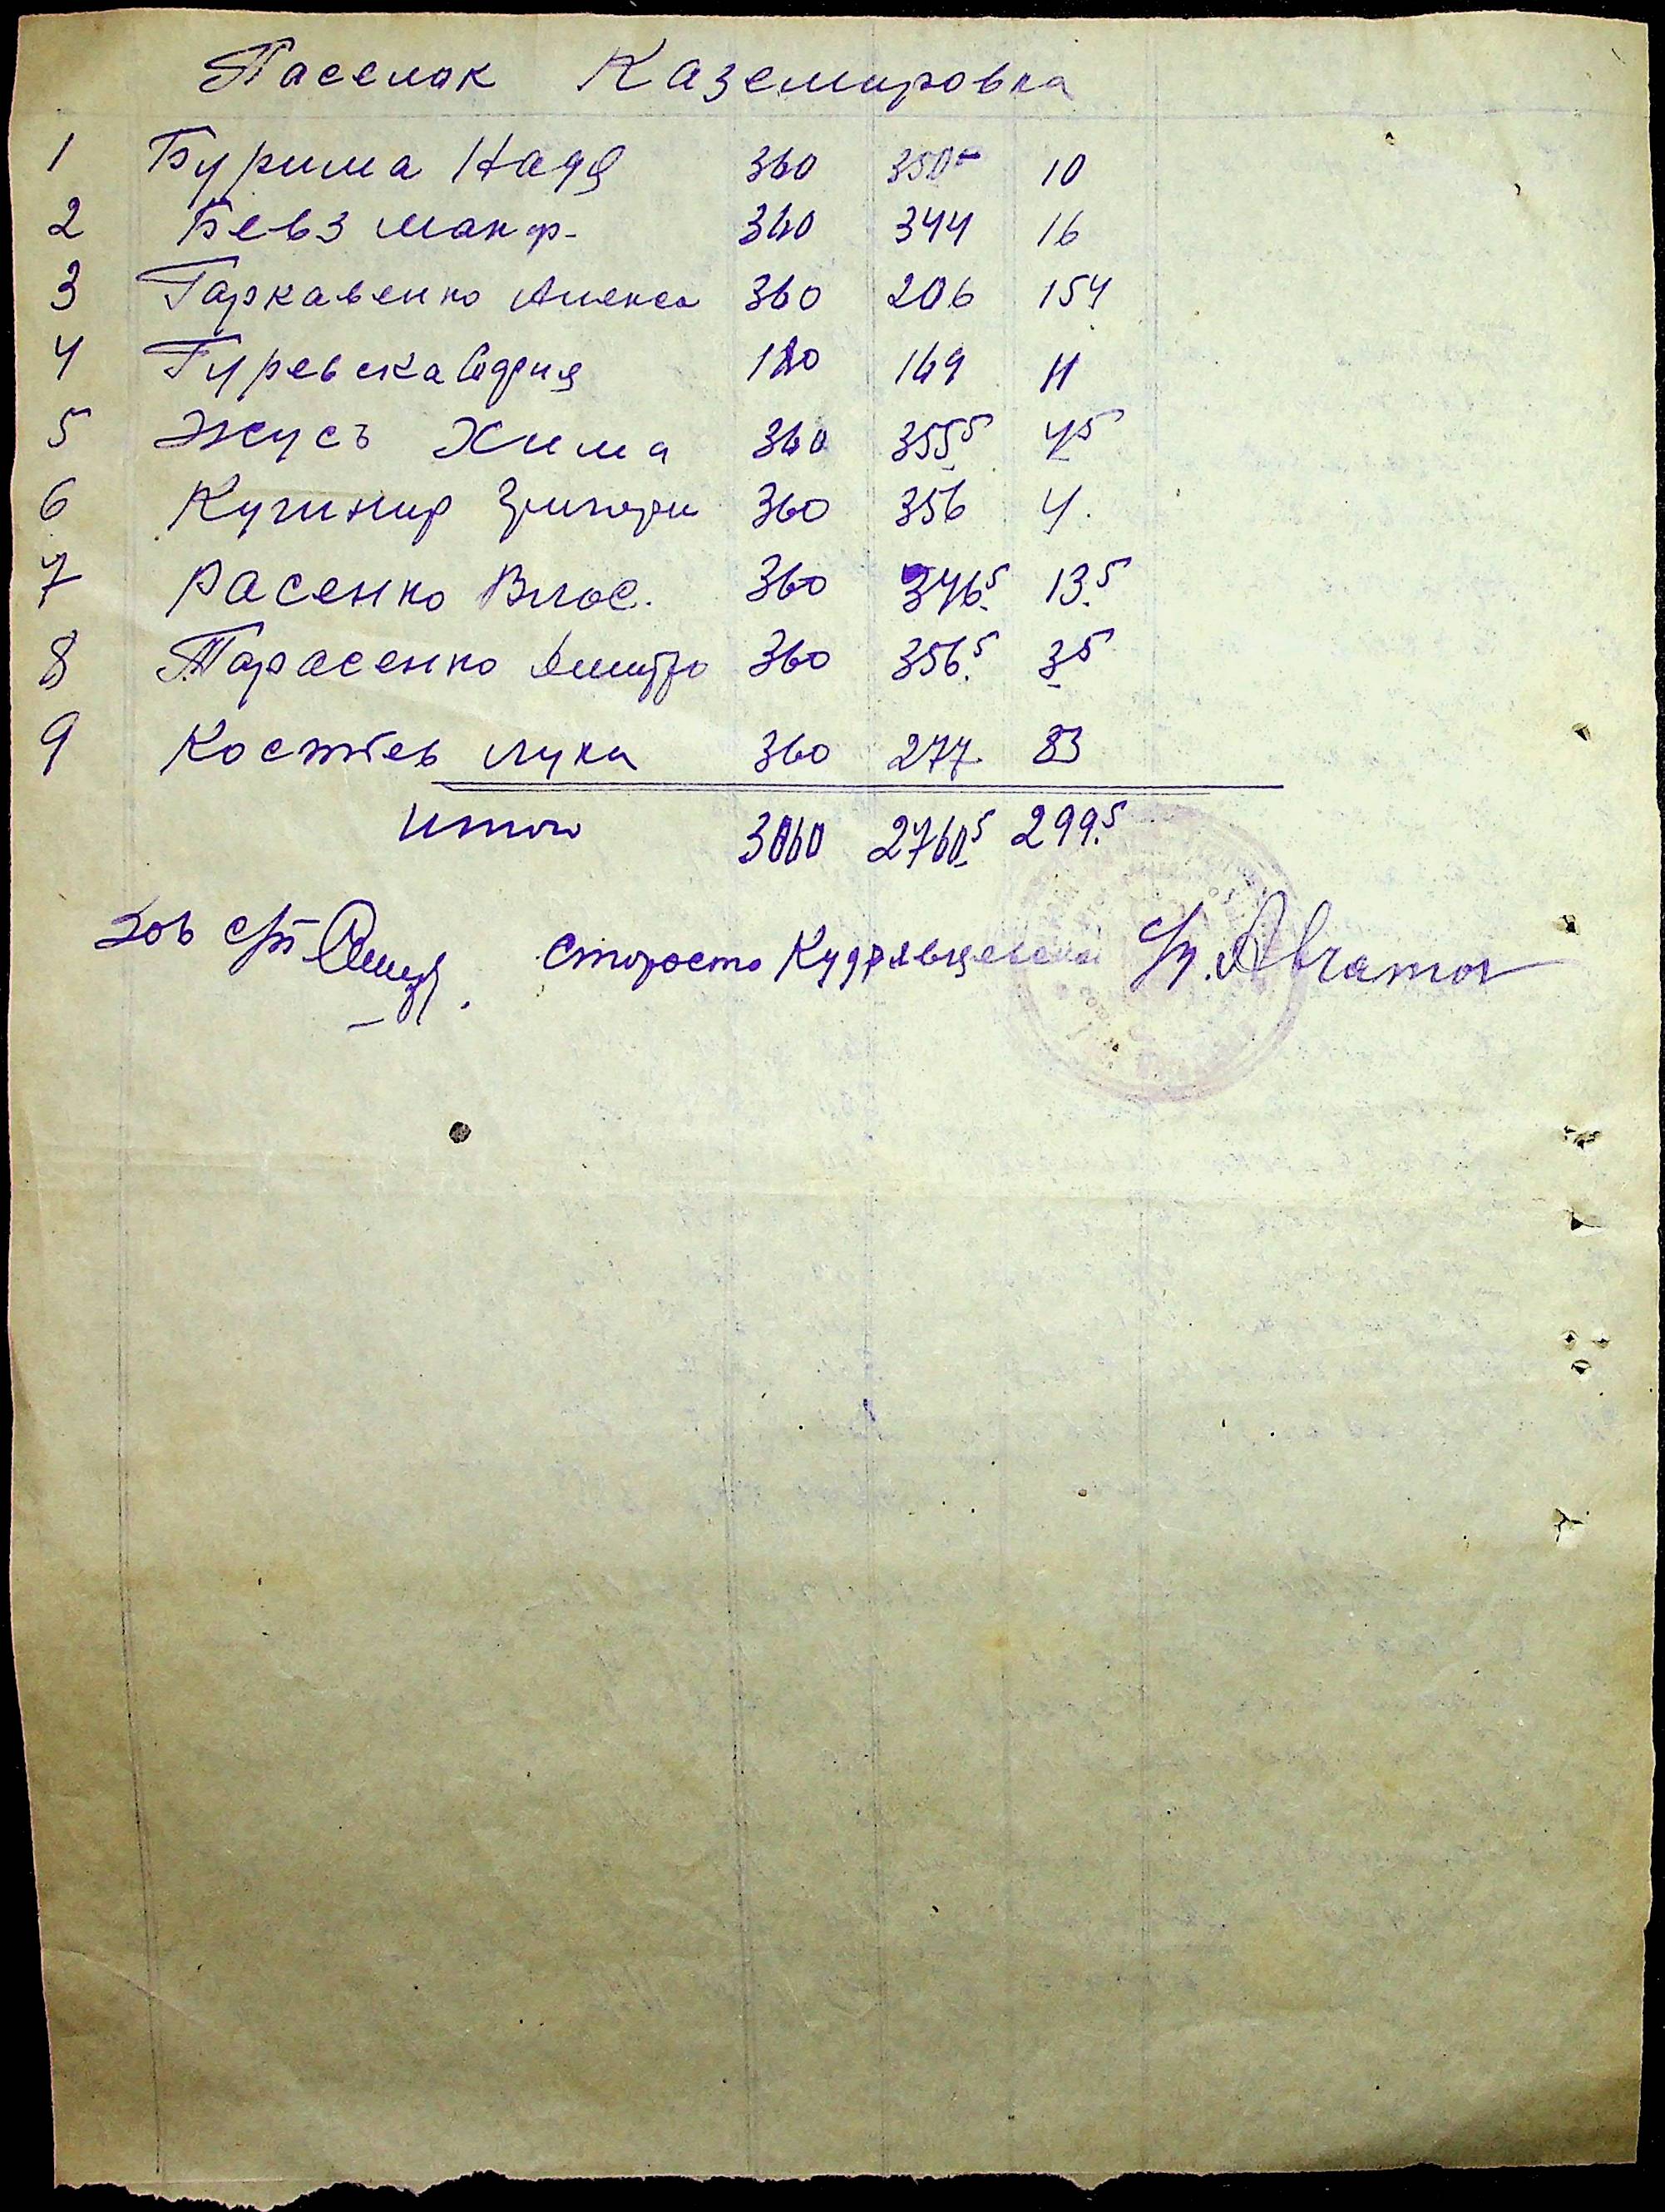 Паселок Каземировка
1 Бурима Надя 360 350 10
2 Бевз Макар 360 344 16
3 Гаркавенко Алекса 360 206 154
4 Гуревска София 180 169 11
5 Жусь Хима 360 355.5 4.5
6 Кучинир Григори 360 356 4.
7 Расенко Влас. 360 346.5 13.5
8 Тарасенко Дмитро 360 356.5 3.5
9 Костев Лука 360 277 83
Итого 3060 2760.5 299.5
Зав староста Кудрявцевской Abramov